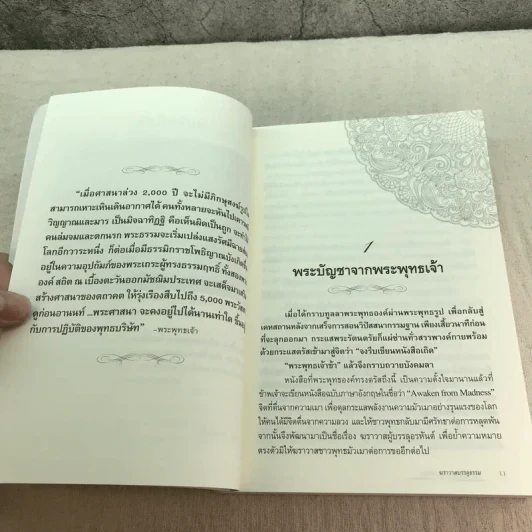 "เมื่อศาสนาล่วง 2,000 ปี จะไม่มีภิกษุสงฆ์
สามารถเหาะเหินเดินอากาศได้ คนทั้งหลายจะหันไป
วิญญาณและมาร เป็นมิจฉาทิฏฐิ คือเห็นผิดเป็นถูก
คนล่มจมและตกนรก พระธรรมจะเริ่มเปล่งแสงรัศมี
โลกอีกวาระหนึ่ง ก็ต่อเมื่อมีธรรมิกราชโพธิญาณบังเกิด
อยู่ในความอุปถัมภ์ของพระเถระผู้ทรงธรรมฤทธิ์
องค์ สถิต ณ เบื้องตะวันออกมัชฌิมประเทศ จะเสด็จมา
สร้างศาสนาของตถาคต ให้รุ่งเรืองสืบไปถึง 5,000
ดูก่อนอานนท์ ...พระศาสนา จะคงอยู่ไปได้นานเท่าใด
กับการปฏิบัติของพุทธบริษัท" -พระพุทธเจ้า
1
พระบัญชาจากพระพุทธเจ้า
เมื่อได้กราบทูลลาพระพุทธองค์ผ่านพระพุทธรูป เพื่อกลับสู่
เคหสถานหลังจากเสร็จการสอนวิปัสสนากรรมฐาน เพียงเสี้ยวนาทีก่อน
ที่จะลุกออกมา กระแสพระรัตนตรัยก็แผ่ซ่านทั่วสรรพางค์กายพร้อม
ด้วยกระแสตรัสเข้ามาสู่จิตว่า "จงรีบเขียนหนังสือเถิด"
"พระพุทธเจ้าข้า" แล้วจึงกราบถวายบังคมลา
หนังสือที่พระพุทธองค์ทรงตรัสถึงนี้ เป็นความตั้งใจมานานแล้วที่
ข้าพเจ้าจะเขียนหนังสือฉบับภาษาอังกฤษในชื่อว่า "Awaken from Madness"
จิตที่ตื่นจากความเมา เพื่อดูลกระแสพลังงานความมัวเมาอย่างรุนแรงของโลก
ให้คนได้มีจิตตื่นจากความลวง และให้ชาวพุทธกลับมามีศรัทธาต่อการหลุดพ้น
จากนั้นจึงพัฒนามาเป็นชื่อเรื่อง ฆราวาสผู้บรรลุอรหันต์ เพื่อย้ำความหมาย
ตรงตัวมิให้ฆราวาสชาวพุทธมัวเมาต่อการขออีกต่อไป
ฆราวาสบรรลุธรรม 11